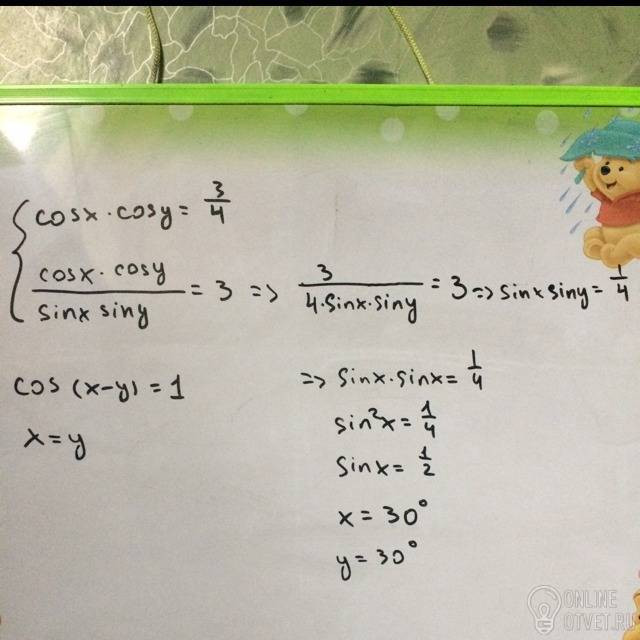 cosx · cosy = 3/4
cosx · cosy / sinx siny = 3 => 3 / 4·sinx·siny = 3 => sinx siny = 1/4
cos (x-y) = 1
x = y
=> sinx · sinx = 1/4
sin²x = 1/4
sinx = 1/2
x = 30°
y = 30°
ONLINE
OTVET.RU